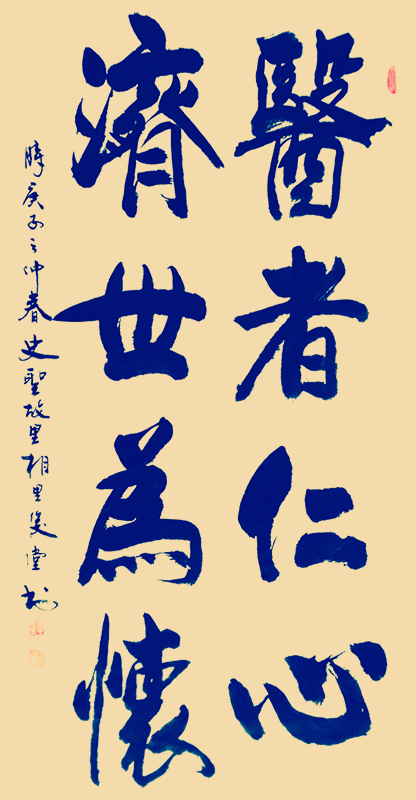 醫者仁心
濟世為懷
時庚子之仲春史聖故里相里雙堂書